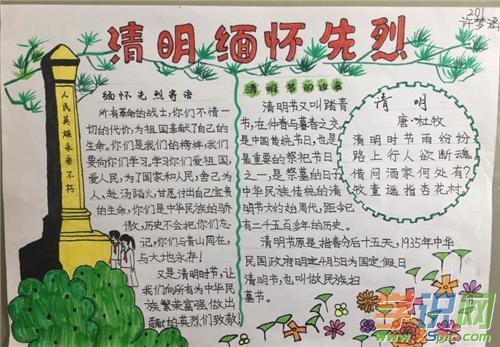 201
许梦涵
清明缅怀先烈
人民英雄永垂不朽
缅怀先烈寄语
所有革命的战士，你们不惜一
切的代价，为祖国奉献了自己的生
命。你们是我们的榜样，我们
要向你们学习，学习你们爱祖国，
爱人民，为了国家和人民，舍己为
人，赴汤蹈火，甘愿付出自己宝贵
的生命，你们是中华民族的骄
傲，历史不会把你们忘
记，你们与青山同在，
与大地永存！
又是清明时节，让
我们向所有为中华民
族繁荣富强，做出
贡献的英烈们致敬
清明节的由来
清明节又叫踏青
节，在仲春与暮春之交，
是中国传统节日，也是
最重要的祭祀节日
之一，是祭墓的日子
中华民族传统的清
明节大约始周代，距今已
有二千五百多年的历史。
清明节原是指春分后十五天，1935年中华
民国政府明定4月5日为国定假日
清明节，也叫做民族扫
墓节。
清明
唐·杜牧
清明时节雨纷纷
路上行人欲断魂
借问酒家何处有？
牧童遥指杏花村
学识网
www.xspic.com